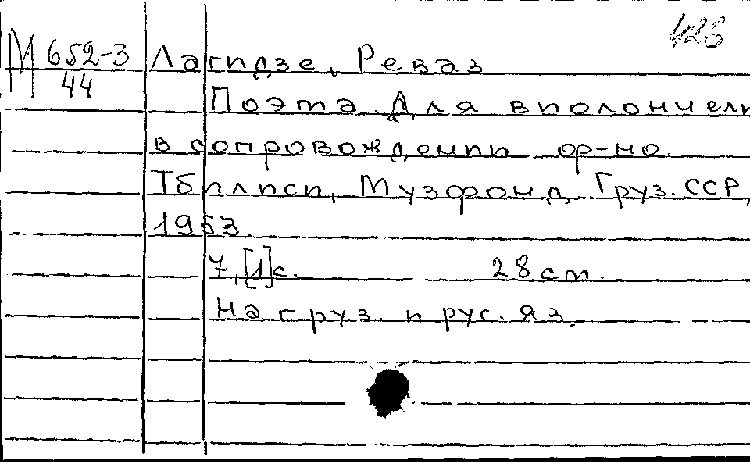 428
М 652-3
44
Лагидзе, Реваз
Поэта. Для виолончели
в сопровождении ф-но.
Тбилиси, Музфонд Груз. ССР,
1953.
7,[1]с. 28 см.
На груз. и рус. яз.